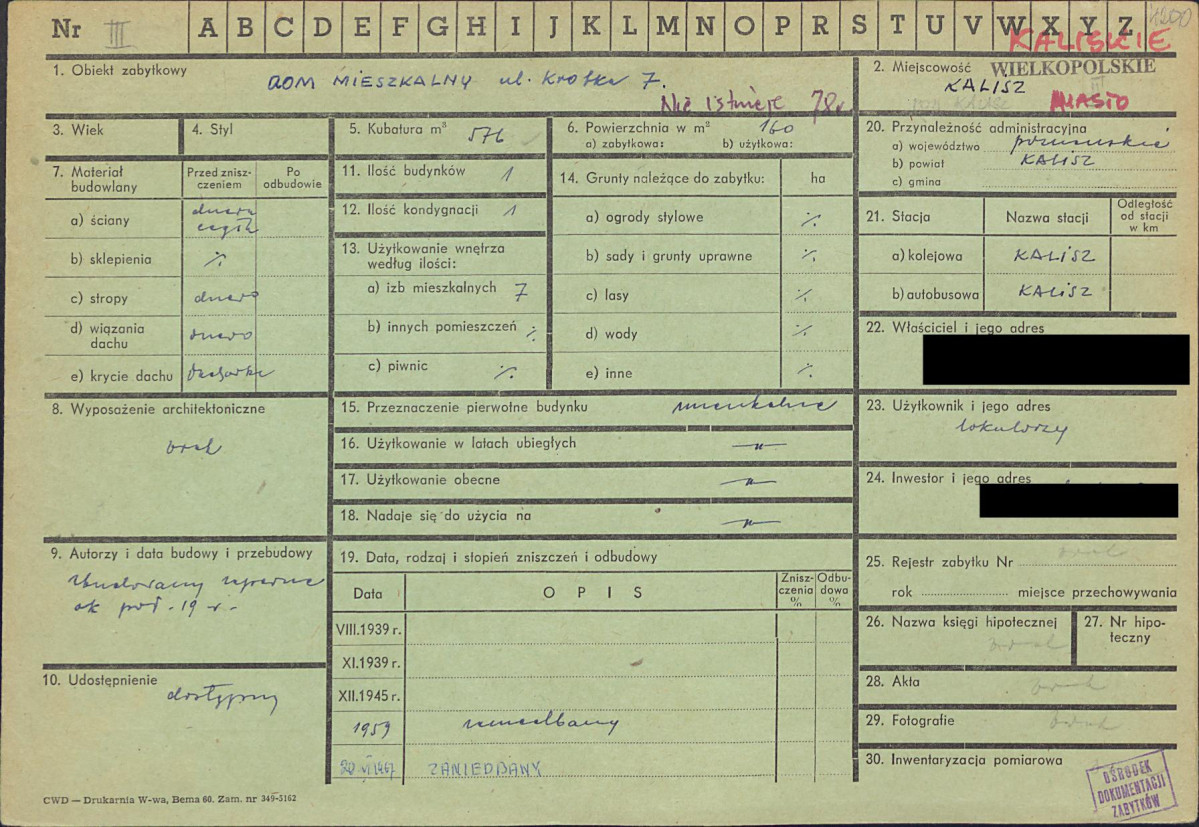 Nr III A B C D E F G H I J K L M N O P R S T U V W X Y Z 1200
KALISKIE
1. Obiekt zabytkowy DOM MIESZKALNY ul. Krótka 7.
Nie istnieje 78r
2. Miejscowość WIELKOPOLSKIE
KALISZ
MIASTO
3. Wiek
4. Styl
5. Kubatura m³ 576
6. Powierzchnia w m² 160
a) zabytkowa: b) użytkowa:
7. Materiał budowlany
Przed zniszczeniem
Po odbudowie
a) ściany drewno cegła
b) sklepienia %
c) stropy drewno
d) wiązania dachu drewno
e) krycie dachu dachówka
8. Wyposażenie architektoniczne
brak
9. Autorzy i data budowy i przebudowy
Zbudowany zapewne
ok poł. 19 w.
10. Udostępnienie dostępny
11. Ilość budynków 1
12. Ilość kondygnacji 1
13. Użytkowanie wnętrza
według ilości:
a) izb mieszkalnych 7
b) innych pomieszczeń %
c) piwnic %
14. Grunty należące do zabytku: ha
a) ogrody stylowe %
b) sady i grunty uprawne %
c) lasy %
d) wody %
e) inne %
15. Przeznaczenie pierwotne budynku mieszkalne
16. Użytkowanie w latach ubiegłych —"—
17. Użytkowanie obecne —"—
18. Nadaje się do użycia na —"—
19. Data, rodzaj i stopień zniszczeń i odbudowy
Data OPIS Zniszczenia % Odbudowa %
VIII.1939 r.
XI.1939 r.
XII.1945 r.
1959 zaniedbany
20 VI 1967 ZANIEDBANY
20. Przynależność administracyjna
a) województwo poznańskie
b) powiat KALISZ
c) gmina
21. Stacja Nazwa stacji Odległość od stacji w km
a) kolejowa KALISZ
b) autobusowa KALISZ
22. Właściciel i jego adres
23. Użytkownik i jego adres
lokatorzy
24. Inwestor i jego adres
25. Rejestr zabytku Nr brak
rok miejsce przechowywania
26. Nazwa księgi hipotecznej brak
27. Nr hipoteczny
28. Akta brak
29. Fotografie brak
30. Inwentaryzacja pomiarowa
OŚRODEK
DOKUMENTACJI
ZABYTKÓW
CWD — Drukarnia W-wa, Bema 60. Zam. nr 349-5162